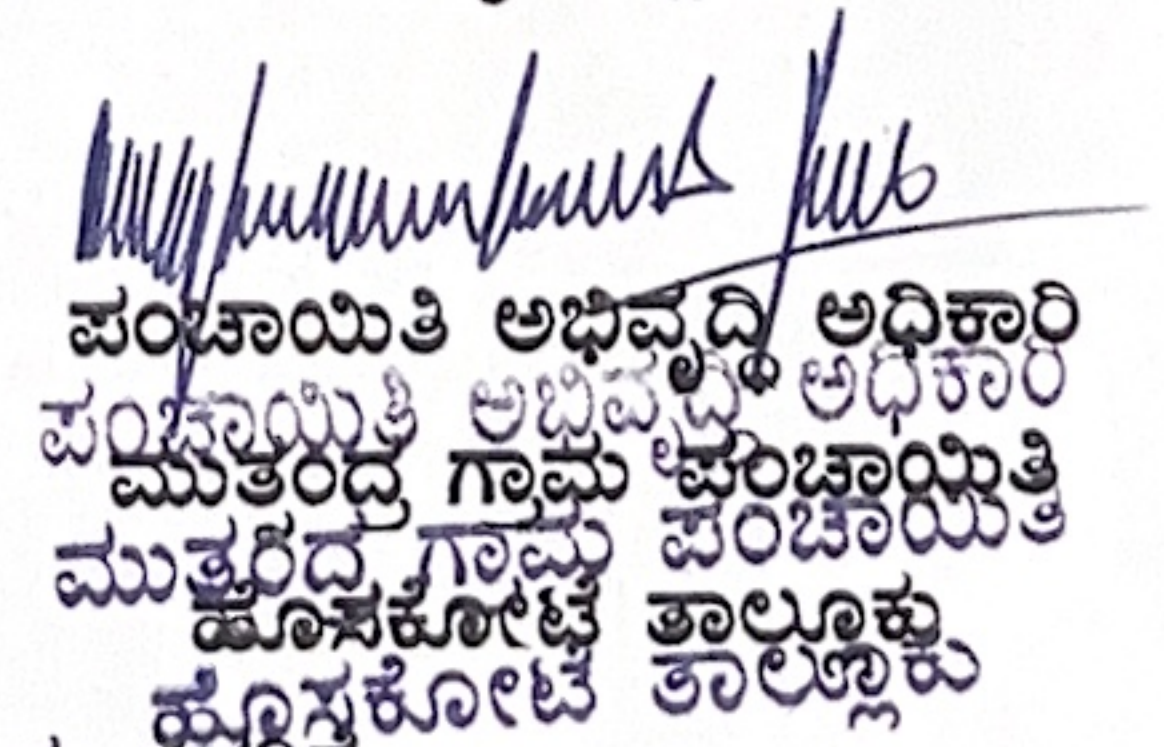 ಪಂಚಾಯಿತಿ ಅಭಿವೃದ್ಧಿ ಅಧಿಕಾರಿ
ಪಂಚಾಯಿತಿ ಅಭಿವೃದ್ಧಿ ಅಧಿಕಾರಿ
ಮುತಂದ್ರ ಗ್ರಾಮ ಪಂಚಾಯಿತಿ
ಗ್ರಾಮ ಪಂಚಾಯಿತಿ
ಹೊಸಕೋಟೆ ತಾಲ್ಲೂಕು
ಹೊಸಕೋಟೆ ತಾಲ್ಲೂಕು